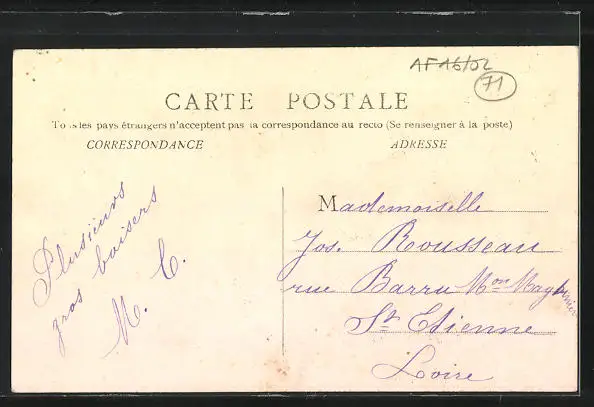 AFA6/02
71
CARTE POSTALE
Tous les pays étrangers n'acceptent pas la correspondance au recto (Se renseigner à la poste)
CORRESPONDANCE
ADRESSE
Plusieurs
gros baisers
M. C.
Mademoiselle
Jos. Rousseau
rue Barru Mon
St Etienne
Loire